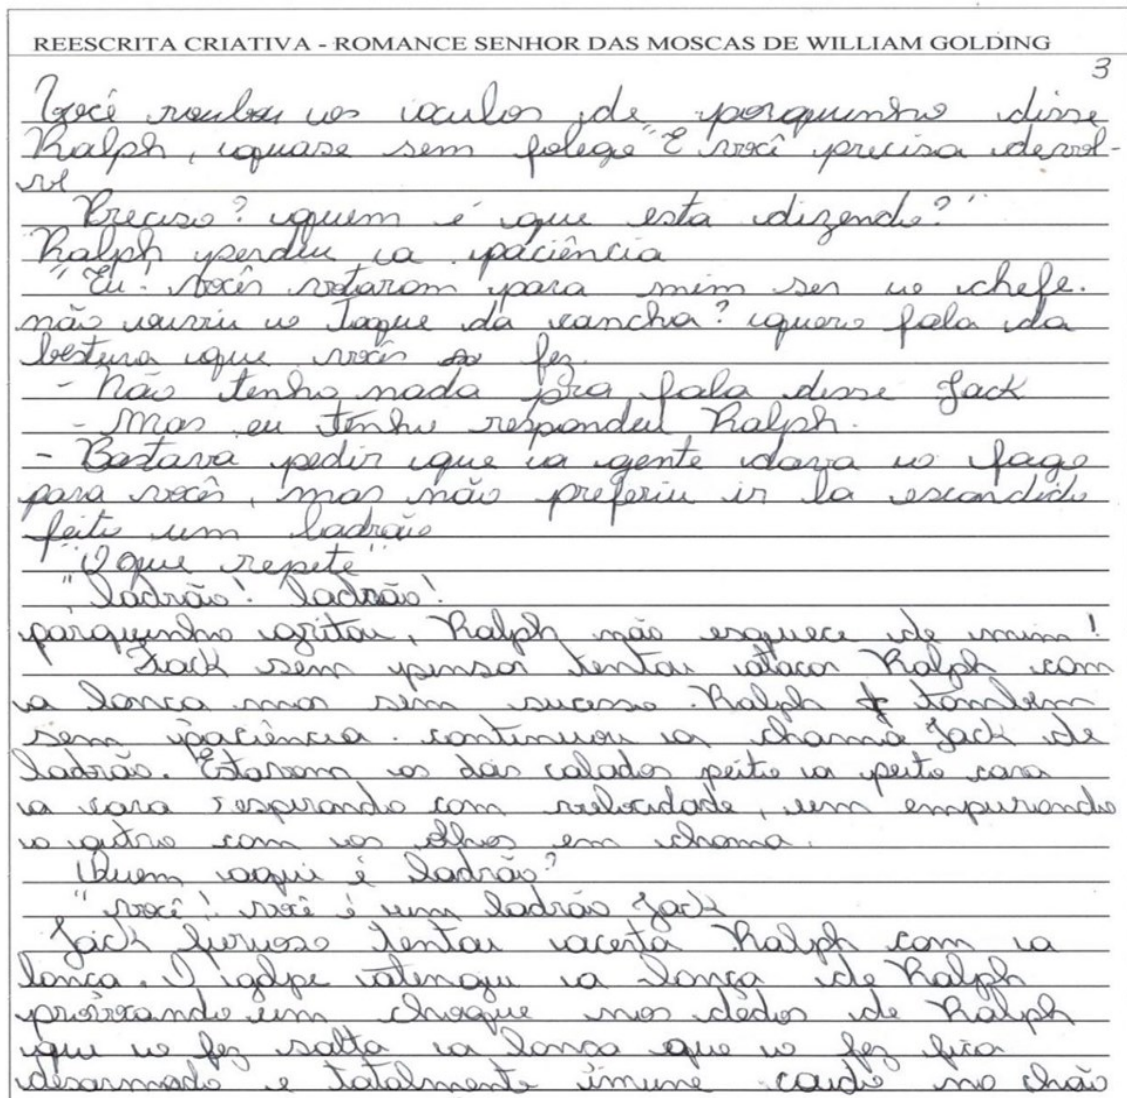 REESCRITA CRIATIVA - ROMANCE SENHOR DAS MOSCAS DE WILLIAM GOLDING
3
Você roubou os oculos de porquinho disse
Ralph, quase sem folego "E você precisa devol-
ve
Preciso? quem é que esta dizendo?"
Ralph perdeu a paciência
"Eu! vocês votaram para mim ser o chefe.
não ouviu o toque da concha? quero fala da
besteira que vocês fez.
- Não tenho nada pra fala disse Jack
- Mas eu tenho respondeu Ralph.
- Bastava pedir que a gente dava o fogo
para vocês, mas não preferiu ir la escondido
feito um ladrão
"O que repete"
"ladrão! ladrão!
porquinho gritou, Ralph não esquece de mim!
Jack sem pensar tentou atacar Ralph com
a lança mas sem sucesso. Ralph também
sem paciência. continuou a chamá Jack de
ladrão. Estavam os dois calados peito a peito cara
a cara respirando com velocidade, um empurando
o outro com os olhos em chama.
Quem aqui é ladrão?
"você! você é um ladrão Jack
Jack furioso tentou acerta Ralph com a
lança. O golpe atingiu a lança de Ralph
provocando um choque nos dedos de Ralph
que o fez solta a lança que o fez fica
desarmado e totalmente imune caido no chão